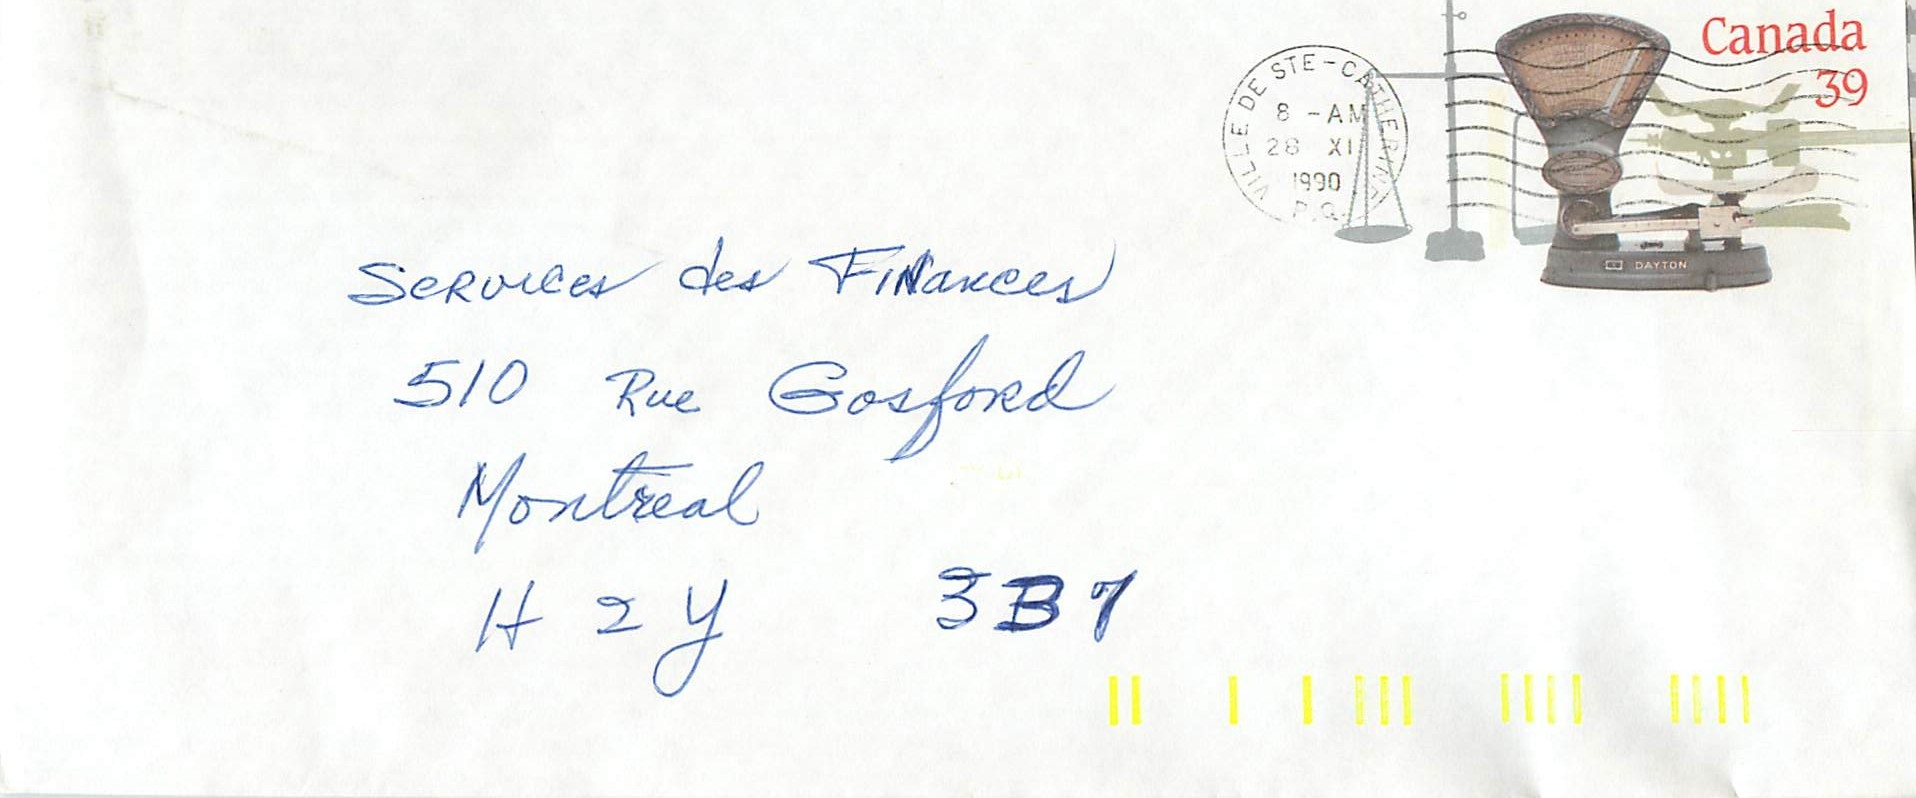 Canada
39
VILLE DE STE-CATHERINE
8 -AM
28 XI
1990
P.Q.
DAYTON
Services des Finances
510 Rue Gosford
Montreal
H2Y 3B7